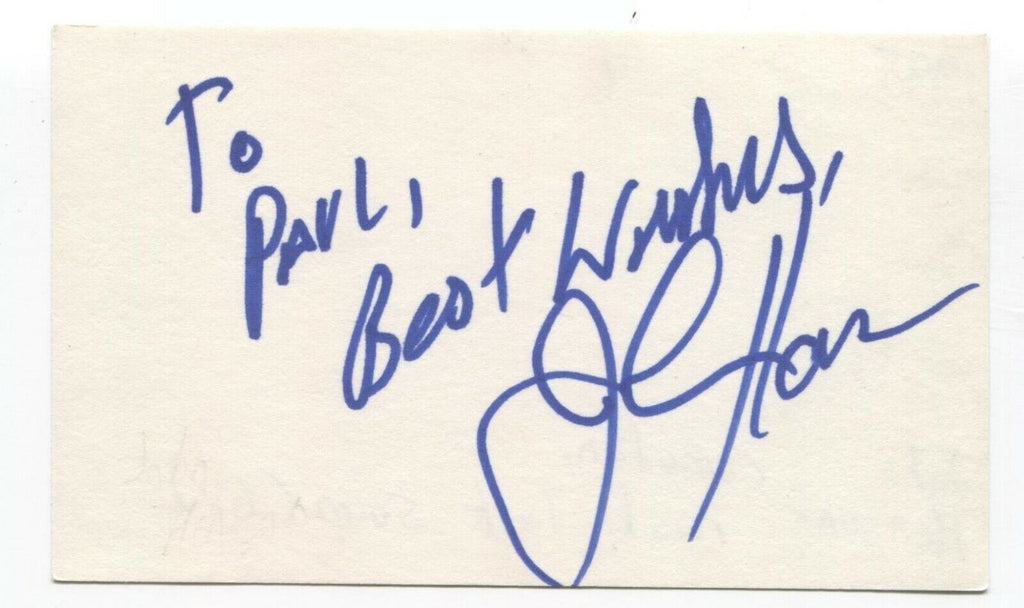 To
Paul,
Best Wishes,